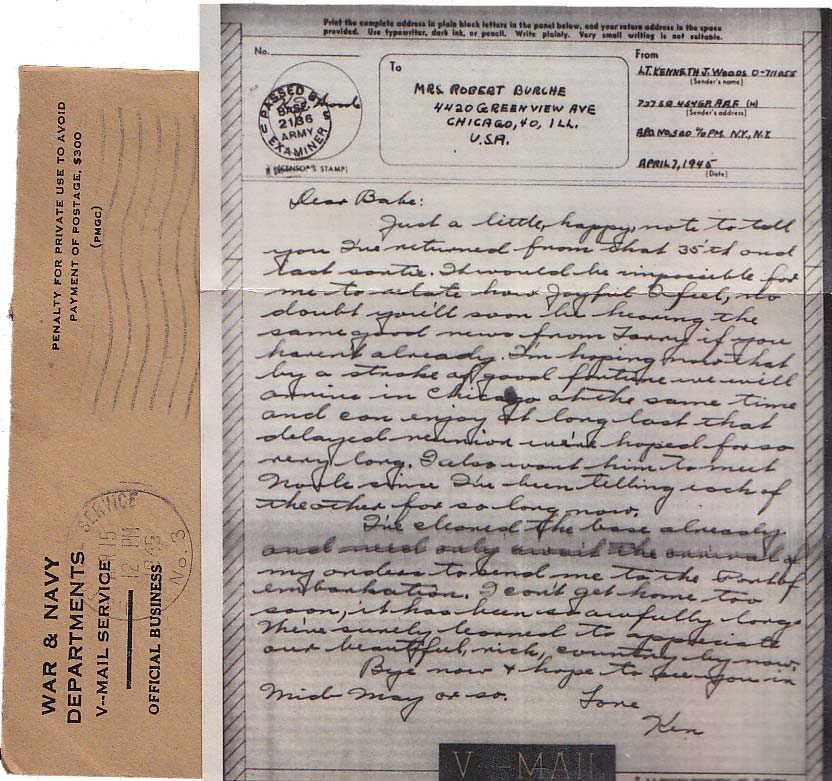 PENALTY FOR PRIVATE USE TO AVOID
PAYMENT OF POSTAGE, $300
(PMGC)
WAR & NAVY
DEPARTMENTS
V--MAIL SERVICE
OFFICIAL BUSINESS
SERVICE
12 PM
No. 3
Print the complete address in plain block letters in the panel below, and your return address in the space
provided. Use typewriter, dark ink, or pencil. Write plainly. Very small writing is not suitable.
No.
PASSED BY
BASE
2136
ARMY
EXAMINER
(CENSOR'S STAMP)
To
MRS. ROBERT BURCHE
4420 GREENVIEW AVE
CHICAGO, 40, ILL.
U.S.A.
From
LT. KENNETH J. WOODS O-711055
(Sender's name)
737 SQ 454 GP. A.A.F. (H)
(Sender's address)
APO NO. 520 % PM. N.Y., N.Y.
APRIL 7, 1945
(Date)
Dear Babe:
Just a little, happy, note to tell
you I've returned from that 35th and
last sortie. It would be impossible for
me to relate how joyful I feel, no
doubt you'll soon be hearing the
same good news from if you
haven't already. I'm hoping now that
by a stroke of good fortune we will
arrive in Chicago at the same time
and can enjoy at long last that
delayed reunion we've hoped for so
very long. I also want him to meet
since I've been telling each of
the other for so long now.
I've cleared the base already
and need only await the arrival of
my orders to send me to the Port of
embarkation. I can't get home too
soon, it has been so awfully long.
We've surely learned to appreciate
our beautiful, rich, country by now.
Bye now & hope to see you in
Mid-May or so. Love
Ken
V--MAIL